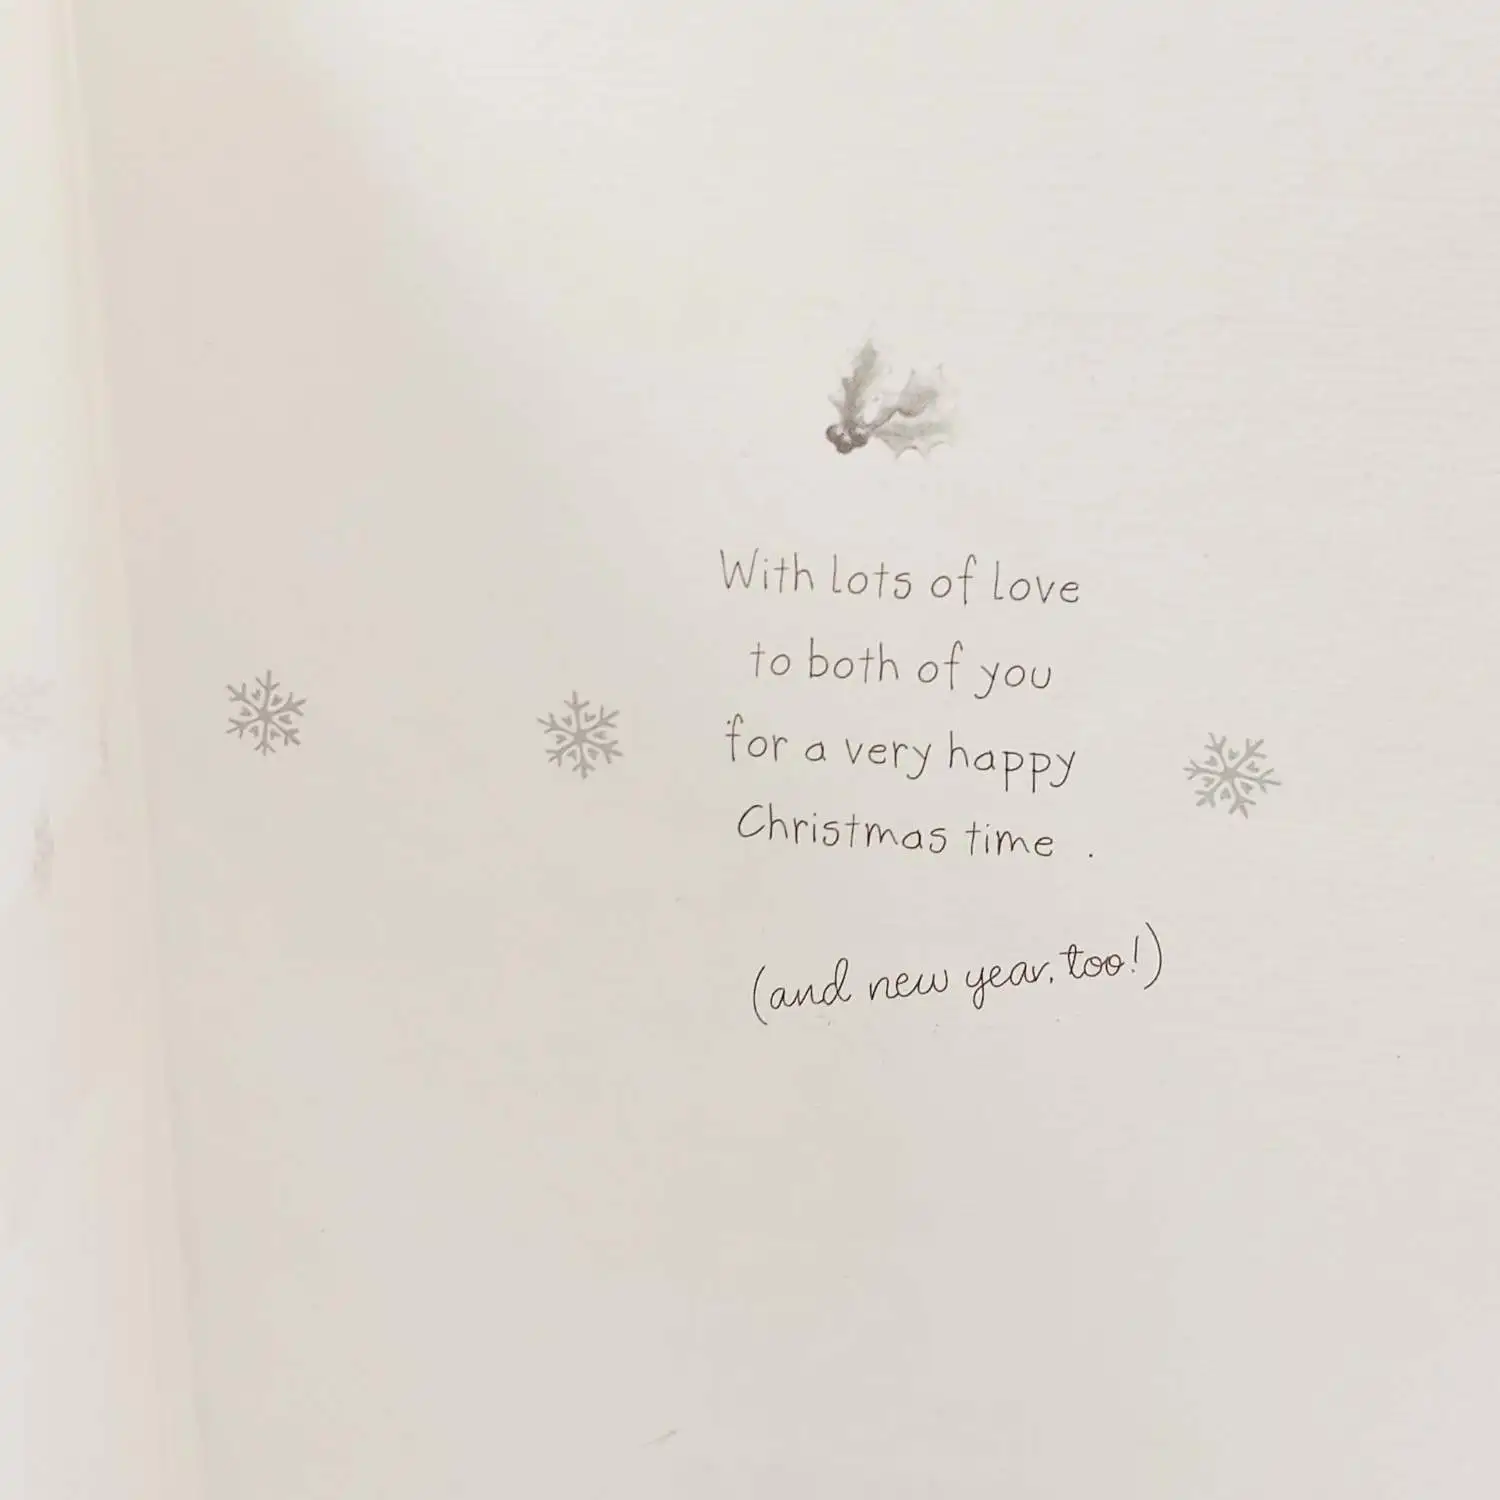 With lots of love
to both of you
for a very happy
Christmas time .
(and new year, too!)